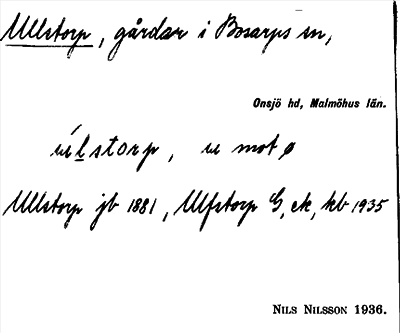 Ullstorp, gårdar i Bosarps sn,
Onsjö hd, Malmöhus län.
úlstorp, u mot ø
Ullstorp jb 1881, Ulfstorp G, ek, kb 1935
NILS NILSSON 1936.